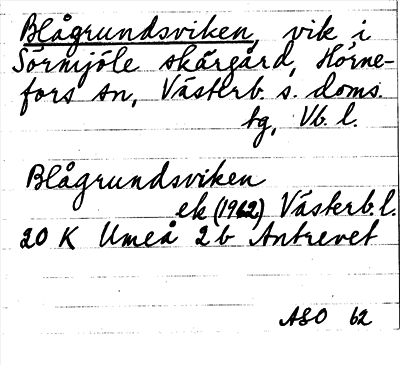 Blågrundsviken, vik i
Sörmjöle skärgård, Hörne-
fors sn, Västerb. s. doms.
tg, Vb. l.
Blågrundsviken
ek (1962) Västerb. l.
20 K Umeå 2b Antrevet
ASO 62